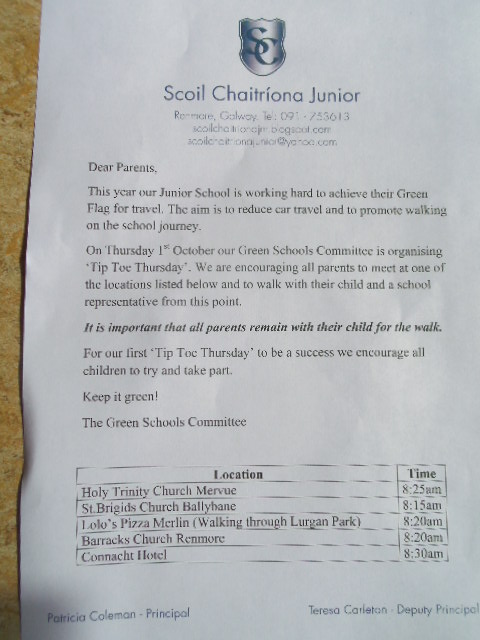 SC
Scoil Chaitríona Junior
Renmore, Galway. Tel: 091 - 753613
scoilchaitrionajnr.blogspot.com
scoilchaitrionajunior@yahoo.com
Dear Parents,
This year our Junior School is working hard to achieve their Green
Flag for travel. The aim is to reduce car travel and to promote walking
on the school journey.
On Thursday 1st October our Green Schools Committee is organising
'Tip Toe Thursday'. We are encouraging all parents to meet at one of
the locations listed below and to walk with their child and a school
representative from this point.
It is important that all parents remain with their child for the walk.
For our first 'Tip Toe Thursday' to be a success we encourage all
children to try and take part.
Keep it green!
The Green Schools Committee
Location Time
Holy Trinity Church Mervue 8:25am
St.Brigids Church Ballybane 8:15am
Lolo's Pizza Merlin (Walking through Lurgan Park) 8:20am
Barracks Church Renmore 8:20am
Connacht Hotel 8:30am
Patricia Coleman - Principal Teresa Carleton - Deputy Principal